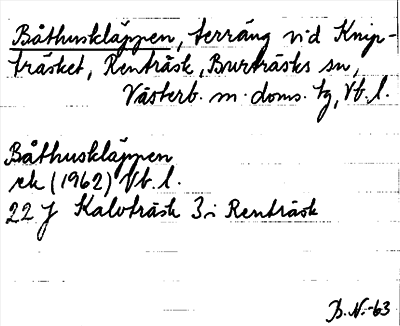 Båthuskläppen, terräng vid Knip-
träsket, Renträsk, Burträsks sn,
Västerb. m. doms. tg, Vb. l.
Båthuskläppen
rek (1962) Vb. l.
22 J Kalvträsk 3 i Renträsk
B. N. -63